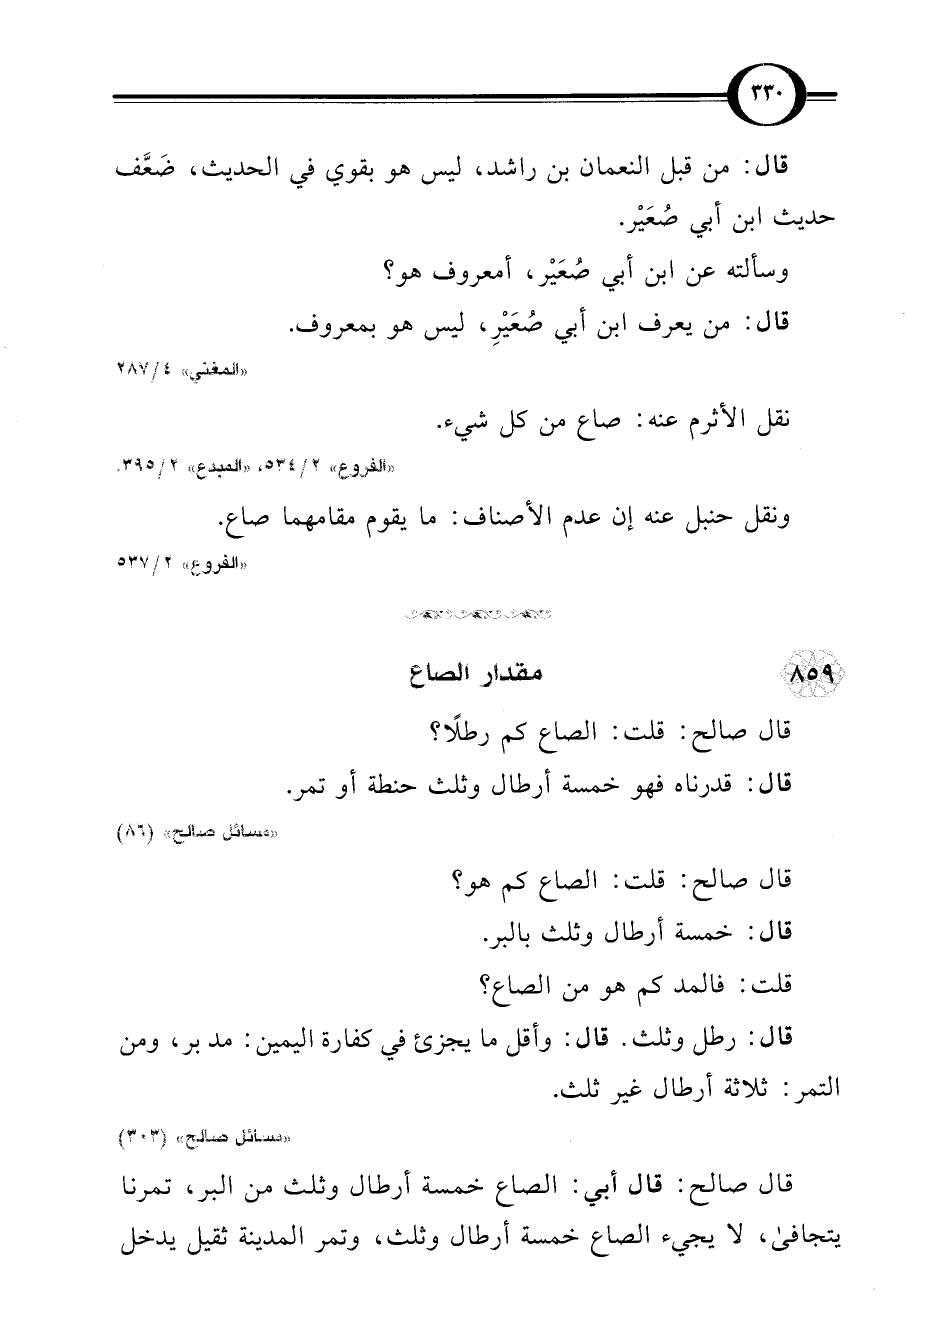 ٣٣٠
قال: من قبل النعمان بن راشد، ليس هو بقوي في الحديث، ضَعَّف
حديث ابن أبي صُعَيْر.
وسألته عن ابن أبي صُعَيْر، أمعروف هو؟
قال: من يعرف ابن أبي صُعَيْرِ، ليس هو بمعروف.
«المغني» ٤/ ٢٨٧
نقل الأثرم عنه: صاع من كل شيء.
«الفروع» ٢/ ٥٣٤، «المبدع» ٢/ ٣٩٥.
ونقل حنبل عنه إن عدم الأصناف: ما يقوم مقامهما صاع.
«الفروع» ٢/ ٥٣٧
٨٥٩ مقدار الصاع
قال صالح: قلت: الصاع كم رطلًا؟
قال: قدرناه فهو خمسة أرطال وثلث حنطة أو تمر.
«مسائل صالح» (٨٦)
قال صالح: قلت: الصاع كم هو؟
قال: خمسة أرطال وثلث بالبر.
قلت: فالمد كم هو من الصاع؟
قال: رطل وثلث. قال: وأقل ما يجزئ في كفارة اليمين: مد بر، ومن
التمر: ثلاثة أرطال غير ثلث.
«مسائل صالح» (٣٠٣)
قال صالح: قال أبي: الصاع خمسة أرطال وثلث من البر، تمرنا
يتجافىٰ، لا يجيء الصاع خمسة أرطال وثلث، وتمر المدينة ثقيل يدخل